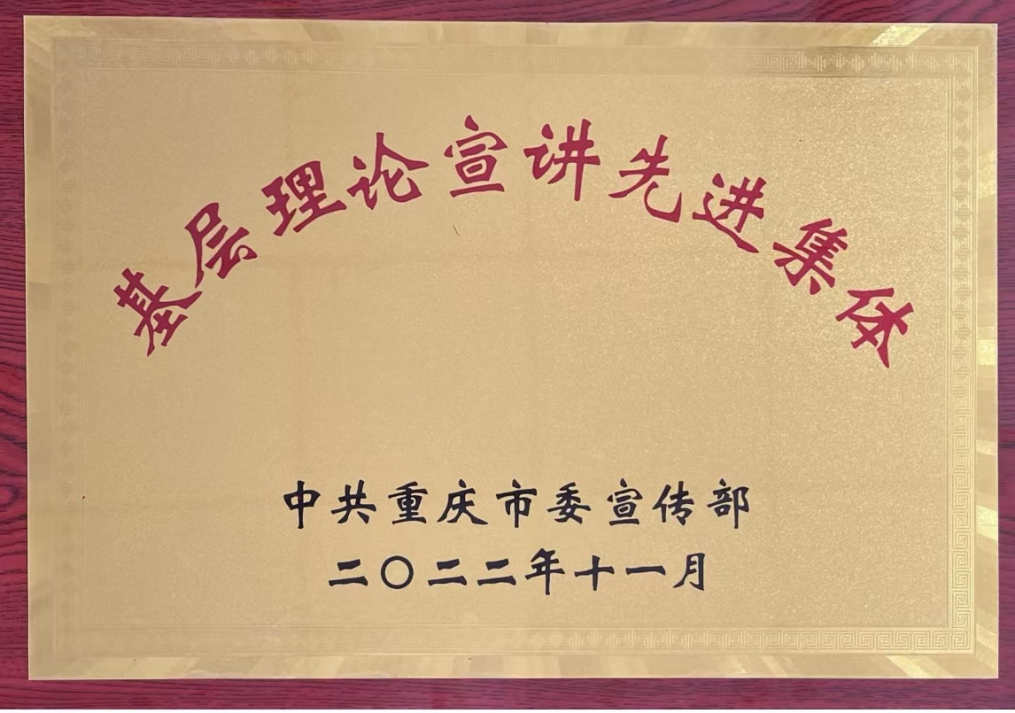 基层理论宣讲先进集体
中共重庆市委宣传部
二〇二二年十一月